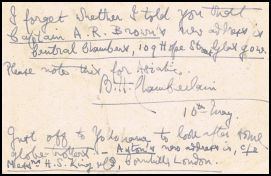 I forget whether I told you that
Captain A. R. Brown's new address is
Central Chambers, 109 Hope St Glasgow.
Please note this for Asiatic.
B. H. Chamberlain
10th May
Just off to Yokohama to look after some
globe-trotters – Aston's new address is, c/o
Messrs H. S. King & Co, Cornhill, London.